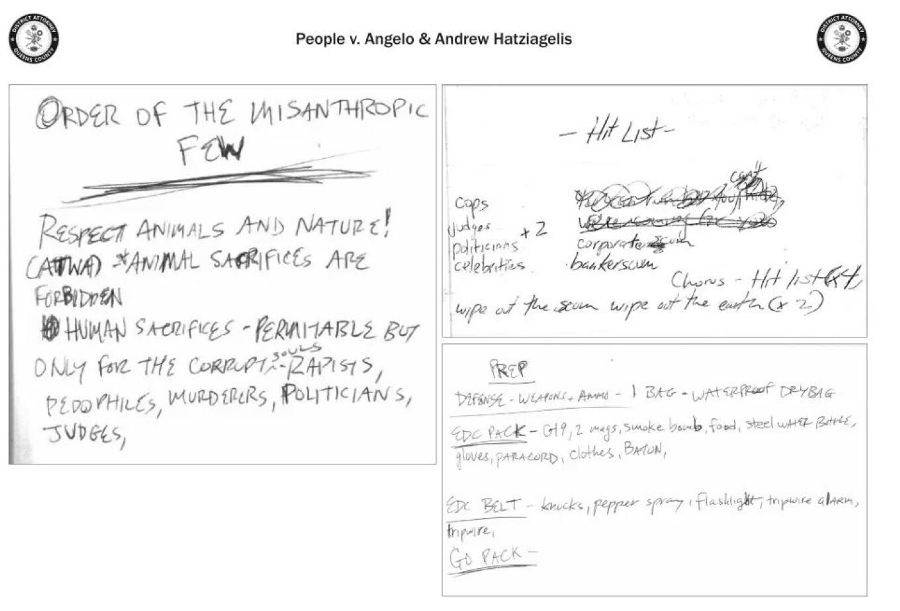 DISTRICT ATTORNEY
QUEENS COUNTY
People v. Angelo & Andrew Hatziagelis
DISTRICT ATTORNEY
QUEENS COUNTY
ORDER OF THE MISANTHROPIC
FEW
RESPECT ANIMALS AND NATURE!
(ATWA) *ANIMAL SACRIFICES ARE
FORBIDDEN
HUMAN SACRIFICES - PERMITABLE BUT
ONLY FOR THE CORRUPT SOULS - RAPISTS,
PEDOPHILES, MURDERERS, POLITICIANS,
JUDGES,
- Hit List -
cops
judges
politicians
celebrities
+2
corporate scum
bankerscum
Chorus - Hit list (x4)
wipe out the scum wipe out the earth (x 2)
PREP
DEFENSE - WEAPONS + AMMO - 1 BAG - WATERPROOF DRYBAG
EDC PACK - G19, 2 mags, smoke bomb, food, steel WATER BOTTLE,
gloves, PARACORD, clothes, BATON,
EDC BELT - knucks, pepper spray, flashlight, tripwire alarm,
tripwire,
GO PACK -